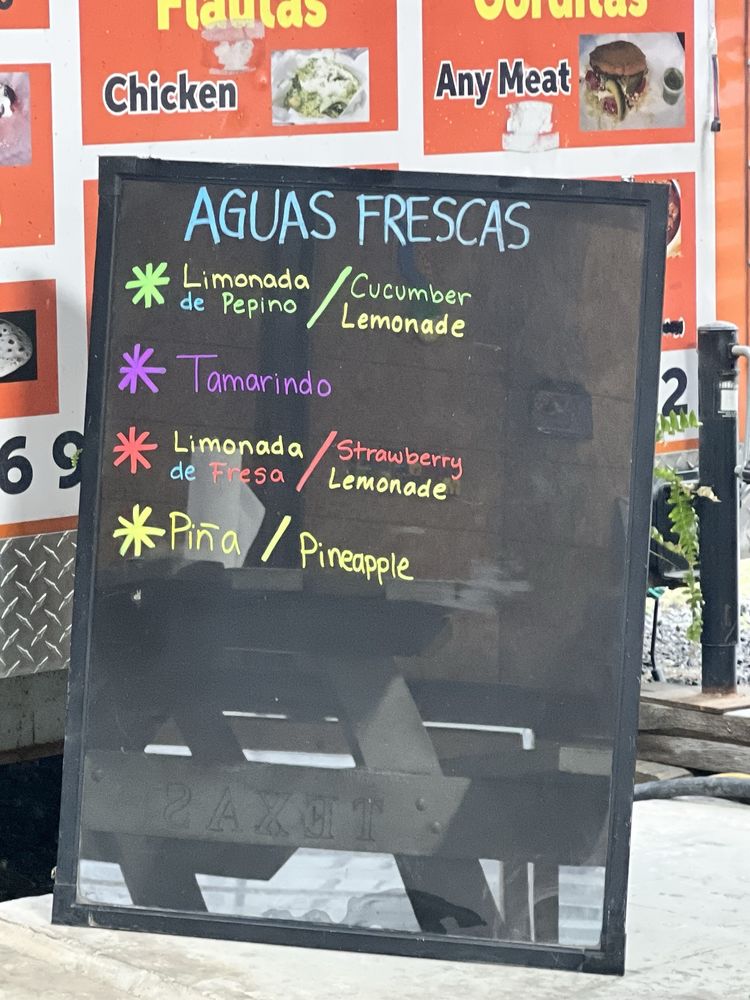 Flautas
Gorditas
Chicken
Any Meat
AGUAS FRESCAS
Limonada / Cucumber
de Pepino Lemonade
Tamarindo
Limonada / Strawberry
de Fresa Lemonade
Piña / Pineapple
69
2
TEXAS